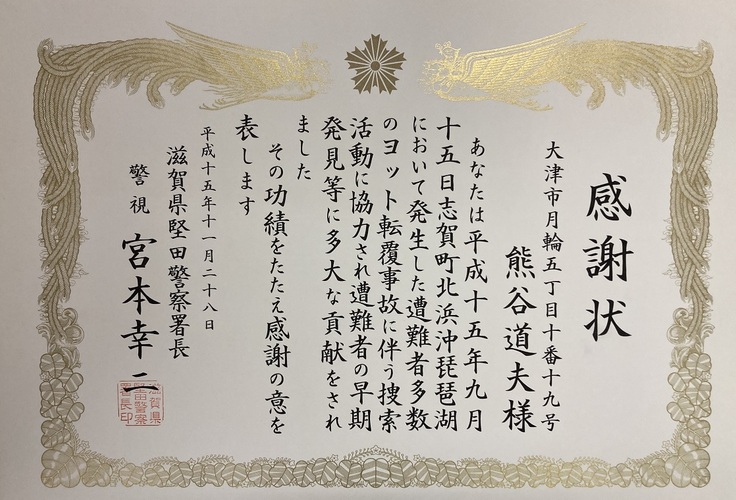 感謝状
大津市月輪五丁目十番十九号
熊谷道夫様
あなたは平成十五年九月
十五日志賀町北浜沖琵琶湖
において発生した遭難者多数
のヨット転覆事故に伴う捜索
活動に協力され遭難者の早期
発見等に多大な貢献をされ
ました
その功績をたたえ感謝の意を
表します
平成十五年十一月二十八日
滋賀県堅田警察署長
警視 宮本幸二
滋賀県
堅田警察
署長印